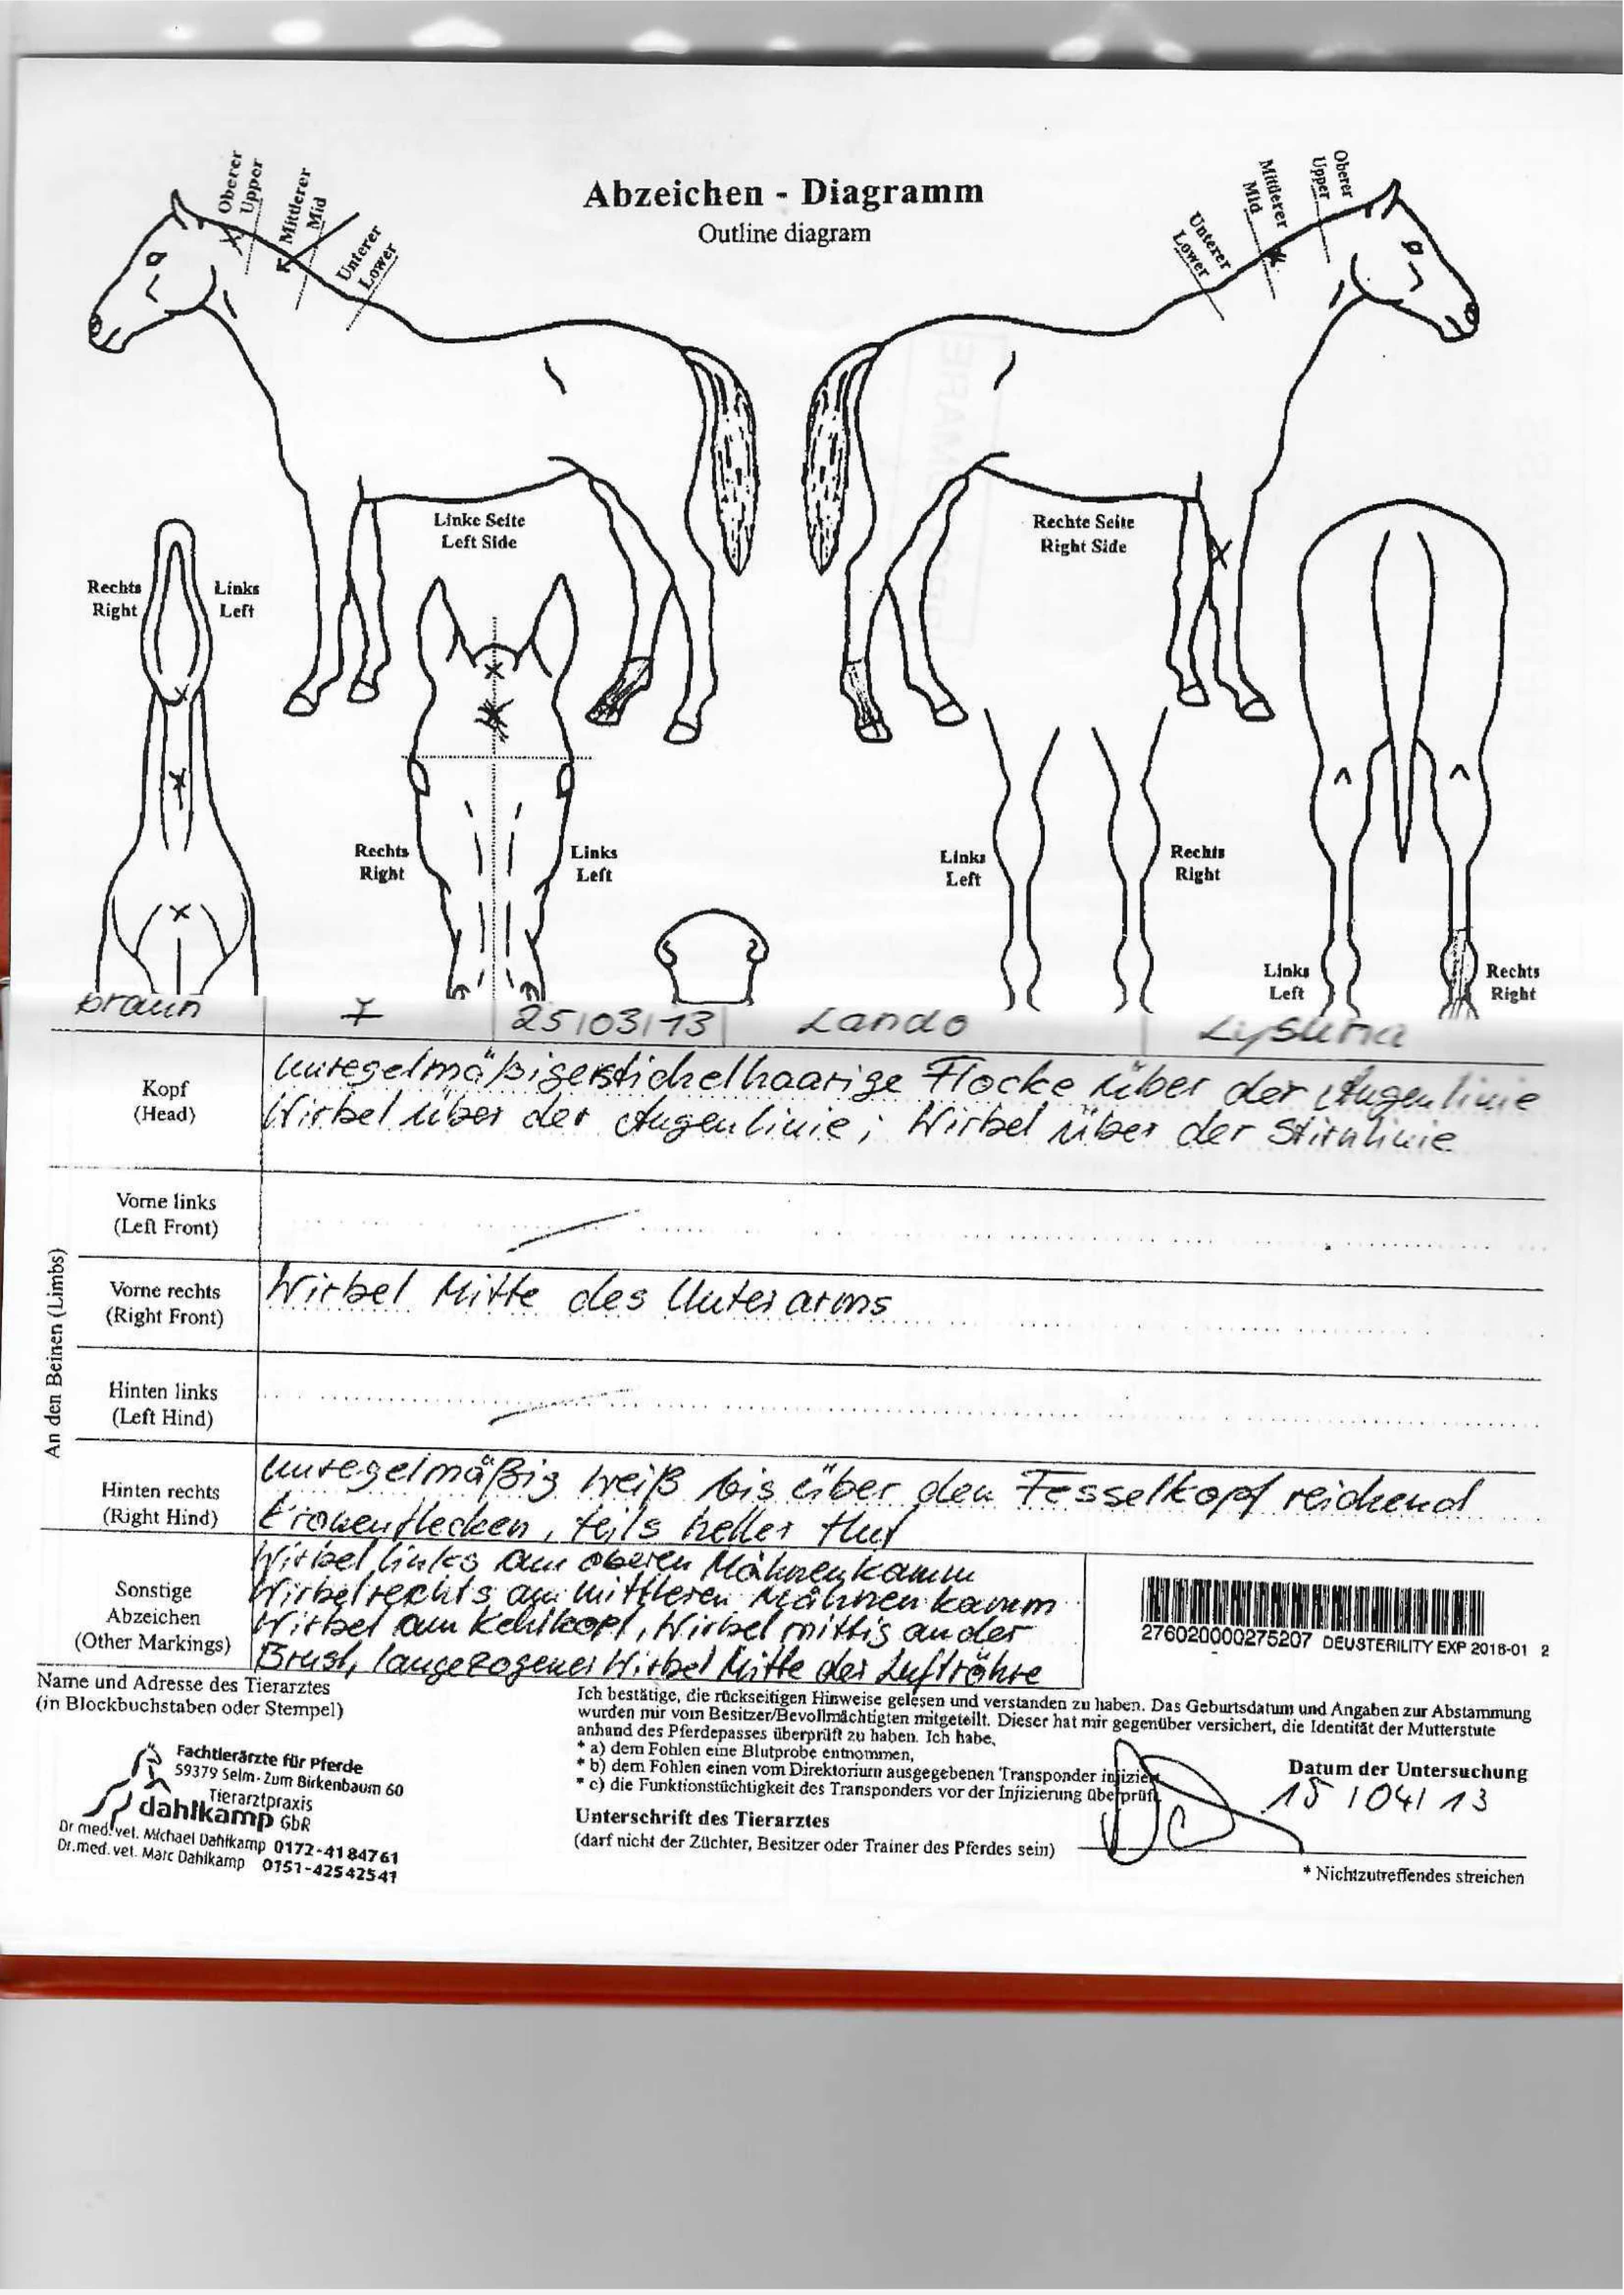 Abzeichen - Diagramm
Outline diagram
Oberer
Upper
Mittlerer
Mid
Unterer
Lower
Unterer
Lower
Mittlerer
Mid
Oberer
Upper
Linke Seite
Left Side
Rechte Seite
Right Side
Rechts
Right
Links
Left
Rechts
Right
Links
Left
Links
Left
Rechts
Right
Links
Left
Rechts
Right
braun 25/03/13 Lando
Kopf
(Head)
unregelmäßiger stichelhaarige Flocke über der Augenlinie
Wirbel über der Augenlinie; Wirbel über der Stirnlinie
An den Beinen (Limbs)
Vorne links
(Left Front)
Vorne rechts
(Right Front)
Wirbel Mitte des Unterarms
Hinten links
(Left Hind)
Hinten rechts
(Right Hind)
unregelmäßig weiß bis über den Fesselkopf reichend
Kronenflecken, teils heller Huf
Sonstige
Abzeichen
(Other Markings)
Wirbel links am oberen Mähnenkamm
Wirbel rechts am mittleren Mähnenkamm
Wirbel am Kehlkopf, Wirbel mittig an der
Brust, langezogener Wirbel Mitte der Luftröhre
276020000275207 DEUSTERILITY EXP 2018-01 2
Name und Adresse des Tierarztes
(in Blockbuchstaben oder Stempel)
Fachtierärzte für Pferde
59379 Selm - Zum Birkenbaum 60
Tierarztpraxis
dahlkamp GbR
Dr med. vet. Michael Dahlkamp 0172-4184761
Dr. med. vet. Marc Dahlkamp 0151-42542541
Ich bestätige, die rückseitigen Hinweise gelesen und verstanden zu haben. Das Geburtsdatum und Angaben zur Abstammung
wurden mir vom Besitzer/Bevollmächtigten mitgeteilt. Dieser hat mir gegenüber versichert, die Identität der Mutterstute
anhand des Pferdepasses überprüft zu haben. Ich habe,
* a) dem Fohlen eine Blutprobe entnommen,
* b) dem Fohlen einen vom Direktorium ausgegebenen Transponder injiziert
* c) die Funktionstüchtigkeit des Transponders vor der Injizierung überprüft
Datum der Untersuchung
15/04/13
Unterschrift des Tierarztes
(darf nicht der Züchter, Besitzer oder Trainer des Pferdes sein)
* Nichtzutreffendes streichen